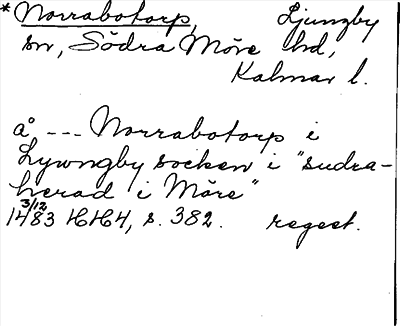 * Norrabotorp, Ljungby
sn, Södra Möre hd,
Kalmar l.
å, --- Norrabotorp i
Lywngby socken i "sudra-
herad i Möre"
3/12
1483 HH4, s. 382. regest.